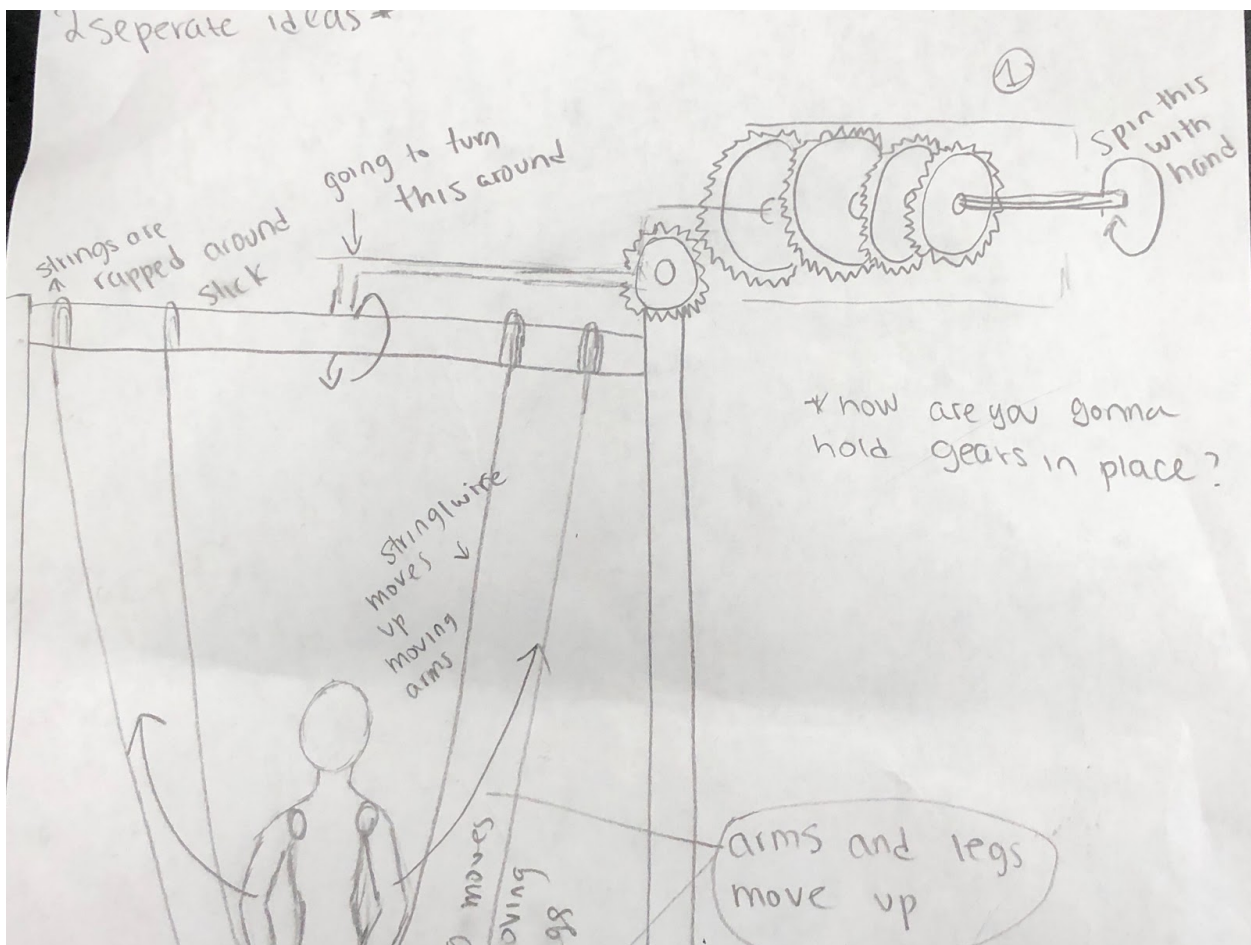 2 seperate ideas *
1
spin this
with
hand
going to turn
this around
strings are
rapped around
stick
* how are you gonna
hold gears in place?
string/wire
moves
up
moving
arms
arms and legs
move up
moves